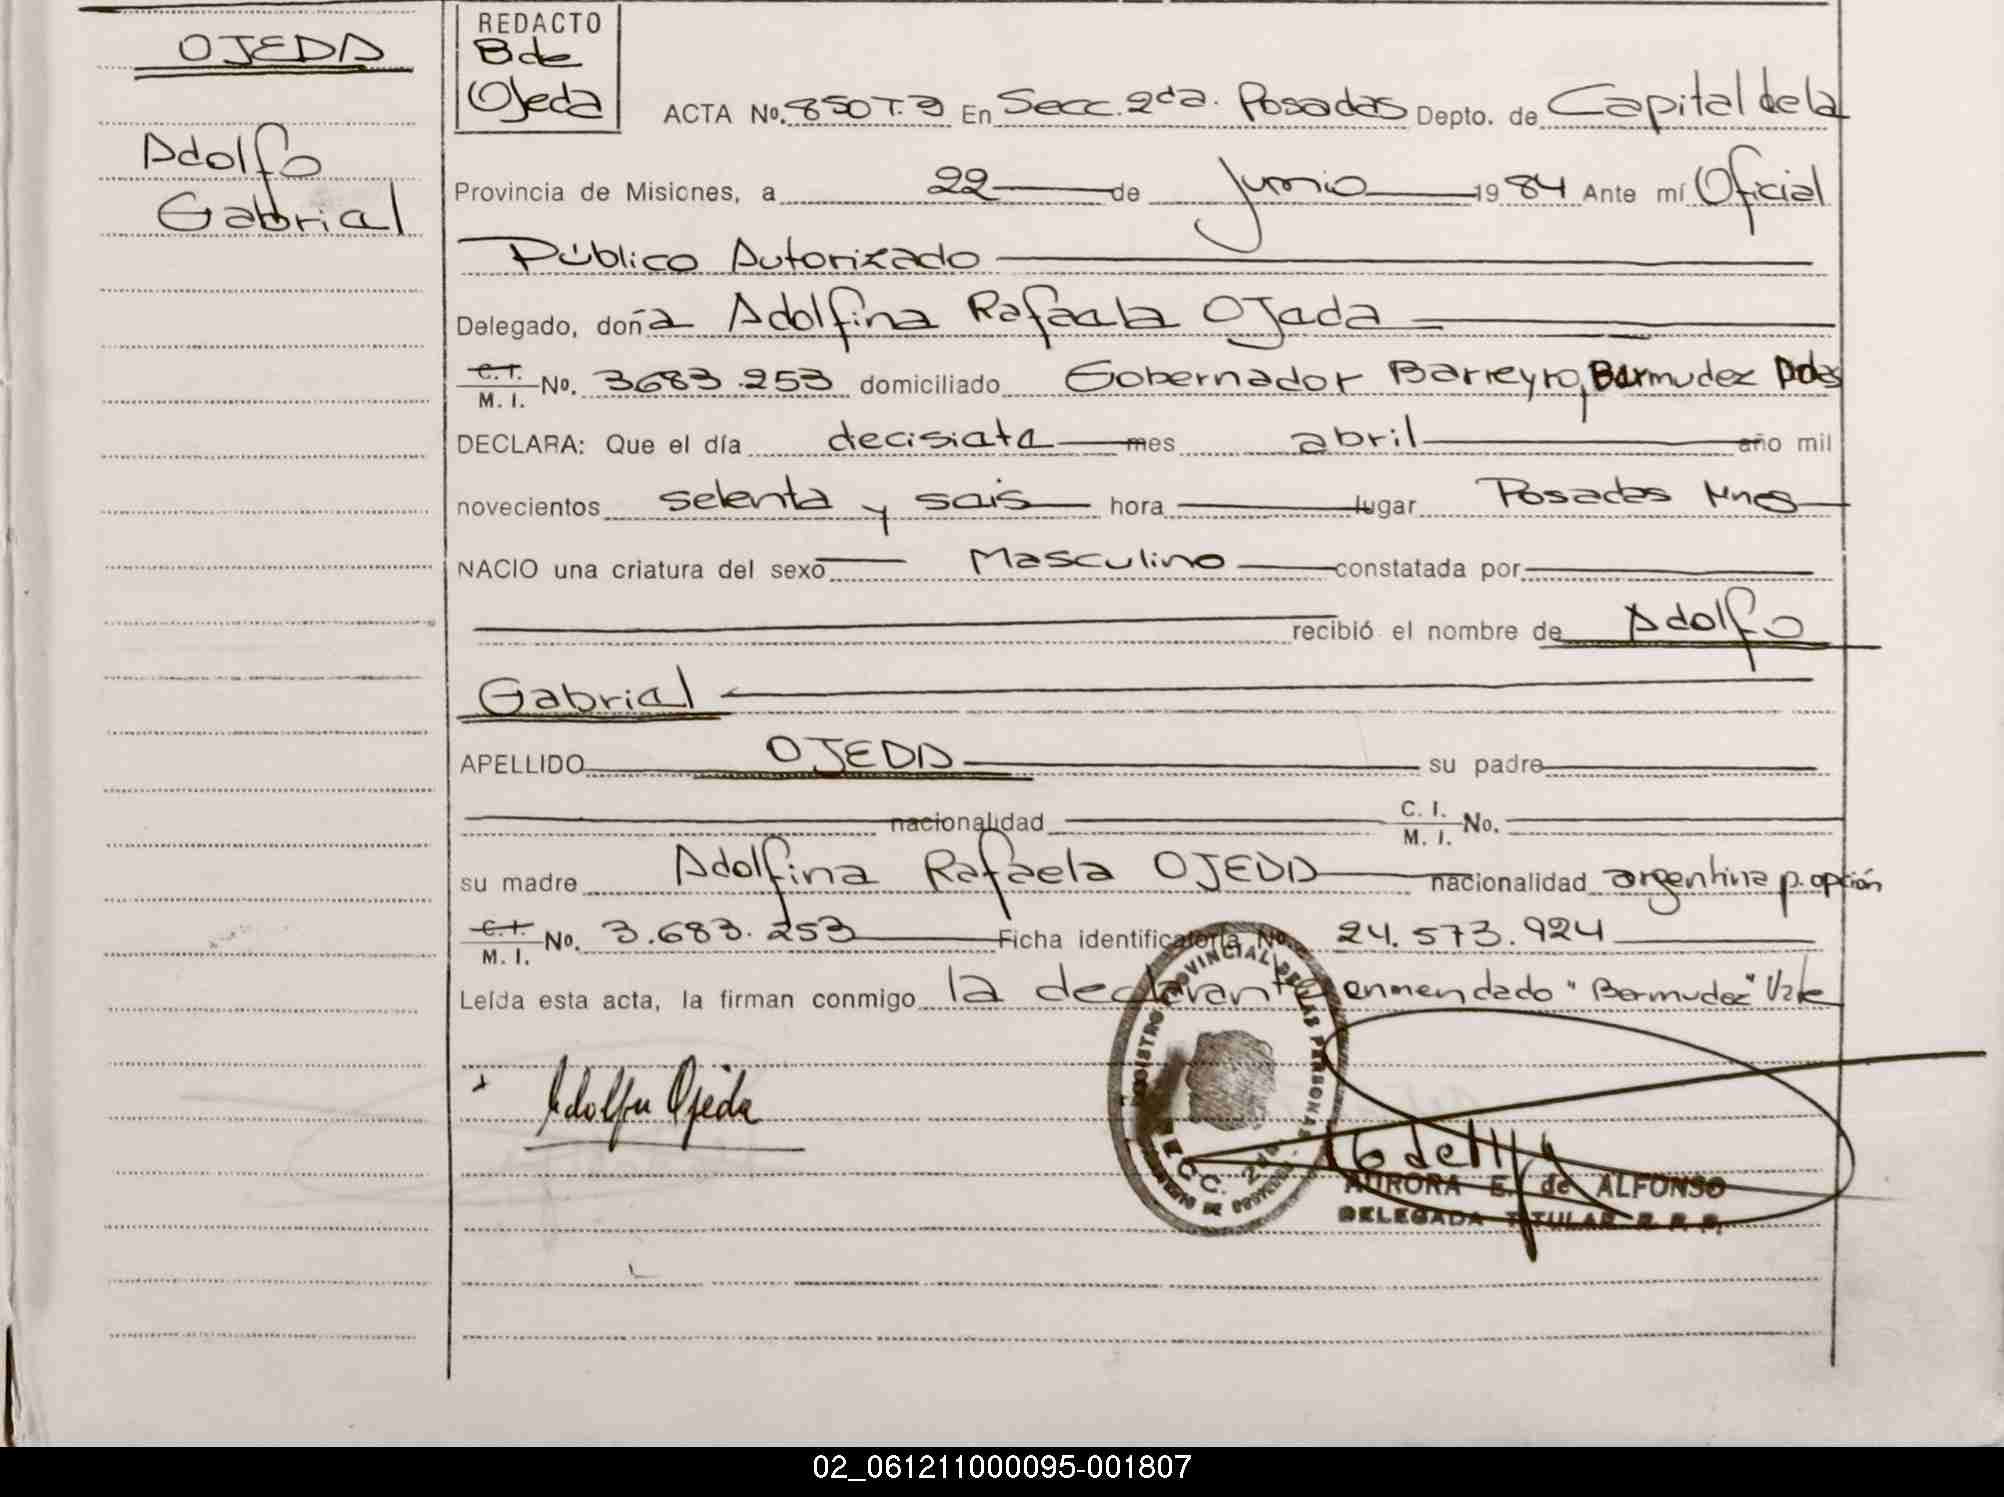 OJEDA
Adolfo
Gabriel
REDACTO
B de
Ojeda
ACTA No. 850 T. 3 En Secc. 2da. Posadas Depto. de Capital de la
Provincia de Misiones, a 22 de Junio 1984 Ante mí Oficial
Público Autorizado
Delegado, doña Adolfina Rafaela Ojeda
C.I. M. I. No. 3683.253 domiciliado Gobernador Barreyro, Bermudez Pdas
DECLARA: Que el día decisiete mes abril año mil
novecientos setenta y seis hora lugar Posadas Mnes
NACIO una criatura del sexo Masculino constatada por
recibió el nombre de Adolfo
Gabriel
APELLIDO OJEDA su padre
nacionalidad C. I. M. I. No.
su madre Adolfina Rafaela OJEDA nacionalidad argentina p. opción
C.I. M. I. No. 3.683.253 Ficha identificatoria No. 24.573.924
Leída esta acta, la firman conmigo la declarante enmendado "Bermudez" Vale
Adolfina Ojeda
REGISTRO PROVINCIAL DE LAS PERSONAS
SECC. 2da
AURORA E. de ALFONSO
DELEGADA TITULAR R. P. P.
02_061211000095-001807